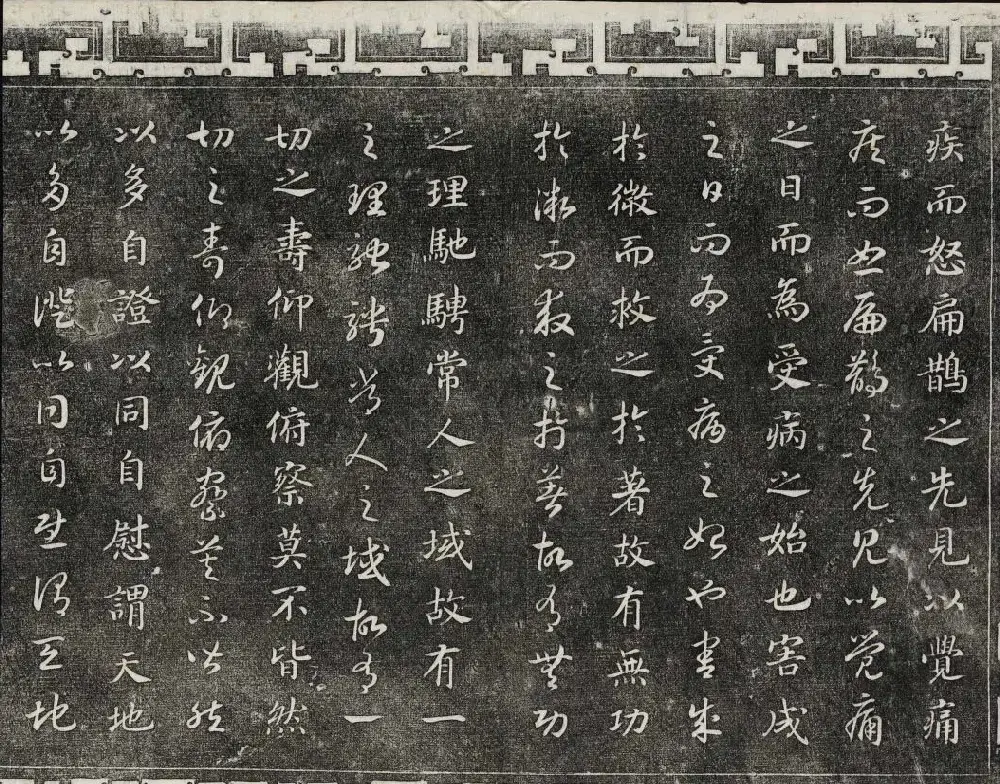 疾而怒扁鵲之先見以覺痛
疾而怒扁鵲之先見以覺痛
之日而為受病之始也害成
之日而為受病之始也害成
於微而救之於著故有無功
於微而救之於著故有無功
之理馳騁常人之域故有一
之理馳騁常人之域故有一
切之壽仰觀俯察莫不皆然
切之壽仰觀俯察莫不皆然
以多自證以同自慰謂天地
以多自證以同自慰謂天地